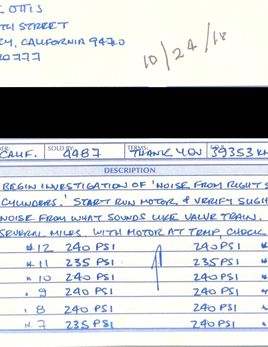 OTIS
TH STREET
CALIFORNIA 94710
0777
10/24/18
CALIF.
SOLD BY
4487
TERMS
THANK YOU
39353
DESCRIPTION
BEGIN INVESTIGATION OF 'NOISE FROM RIGHT S
CYLINDERS.' START RUN MOTOR & VERIFY SLIGH
NOISE FROM WHAT SOUNDS LIKE VALVE TRAIN.
SEVERAL MILES. WITH MOTOR AT TEMP, CHECK
#12 240 PSI 240 PSI #
#11 235 PSI 235 PSI #
#10 240 PSI 240 PSI
#9 240 PSI 240 PSI
#8 240 PSI 240 PSI
#7 235 PSI 240 PSI